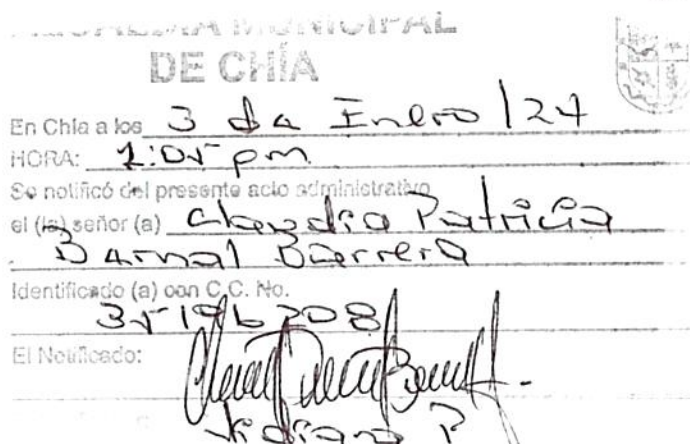 ALCALDÍA MUNICIPAL
DE CHÍA
En Chía a los 3 de Enero/24
HORA: 2:05 pm
Se notificó del presente acto administrativo
el (la) señor (a) Claudia Patricia
Bernal Barrera
Identificado (a) con C.C. No.
35196208
El Notificado:
Viviana P